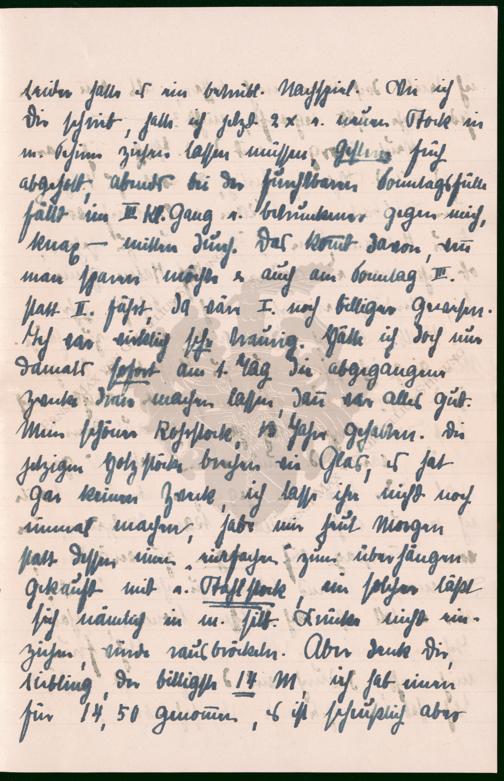 Leider hatte es ein betrübl. Nachspiel. Wie ich
Dir schrieb, hatte ich jetzt 2 x e. neuen Stock in
m. Schirm ziehen lassen müssen, gestern früh
abgeholt, abends bei der furchtbaren Sonntagsfülle
fällt im III Kl. Gang e. betrunkener gegen mich,
knax — mitten durch. Das komt davon, wenn
man sparen möchte u. auch am Sonntag III.
statt II. fährt, da wär I. noch billiger gewesen.
Ich war wirklich sehr traurig. Hätte ich doch nur
damals sofort am 1. Tag die abgegangene
machen lassen, dann war alles gut.
Mein schöner Rohrstock, 13 Jahre gehalten. Die
jetzigen Holzstöcke brechen wie Glas, es hat
gar keinen Zweck, ich lasse ihn nicht noch
einmal machen, habe mir heut Morgen
statt dessen einen „einfachen“ zum überhängen
gekauft mit e. Stahlstock, ein solcher läßt
sich nämlich in m. silb. Krücke nicht ein-
ziehen, würde rausbröckeln. Aber denk Dir,
Liebling, der billigste 14 M, ich hab einen
für 14,50 genommen, es ist scheußlich aber